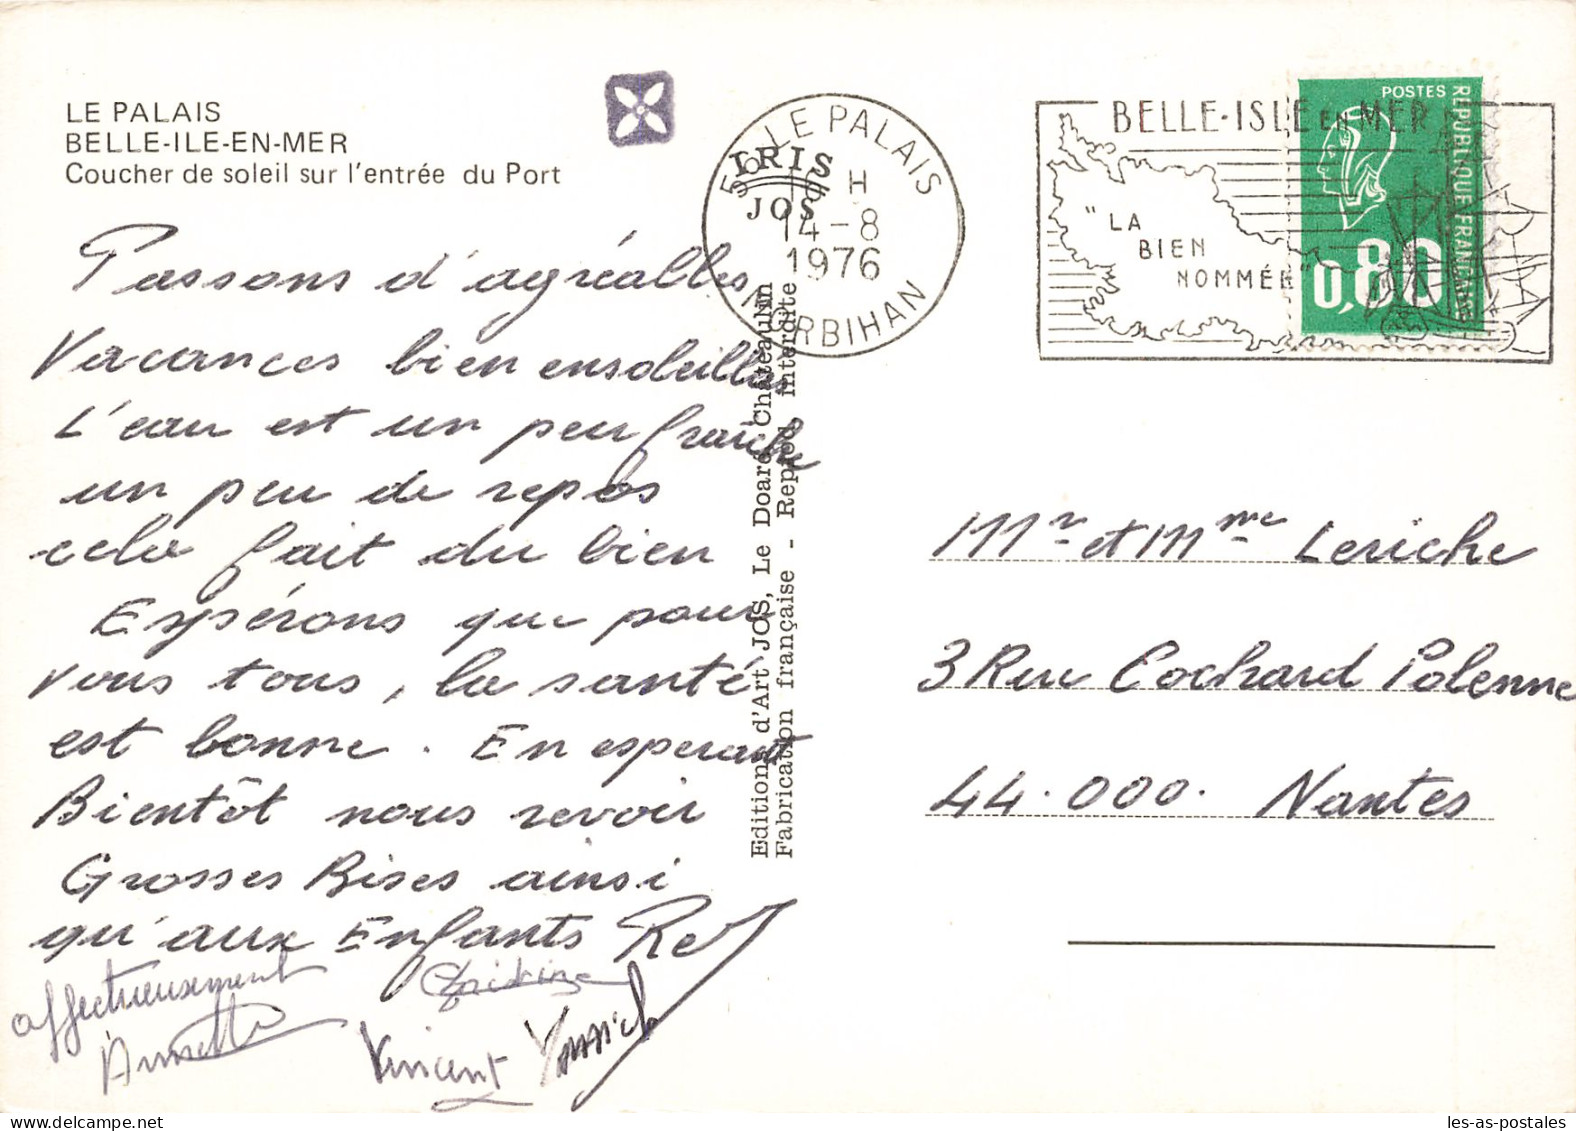 LE PALAIS
BELLE-ILE-EN-MER
Coucher de soleil sur l'entrée du Port
Passons d'agréables
Vacances bien ensoleillées
L'eau est un peu fraîche
un peu de repos
cela fait du bien
Espérons que pour
vous tous, la santé
est bonne. En esperant
Bientôt nous revoir
Grosses Bises ainsi
qu'aux Enfants
affectueusement
Annette
Vincent Yannick
IRIS
JOS
Editions d'Art JOS, Le Doaré, Châteaulin
Fabrication française - Reprod. interdite
56 LE PALAIS
H
14-8
1976
MORBIHAN
BELLE-ISLE EN MER
"LA
BIEN
NOMMÉE"
POSTES
REPUBLIQUE FRANCAISE
0,80
Mr et Mme Leriche
3 Rue Cochard Polenne
44.000. Nantes
les-as-postales.com